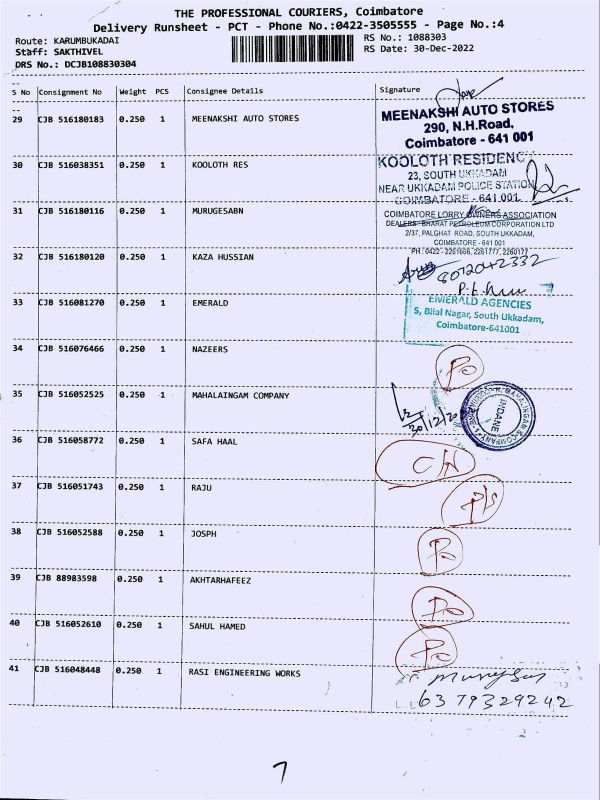 THE PROFESSIONAL COURIERS, Coimbatore
Delivery Runsheet - PCT - Phone No.:0422-3505555 - Page No.:4
Route: KARUMBUKADAI
RS No.: 1088303
Staff: SAKTHIVEL
RS Date: 30-Dec-2022
DRS No.: DCJB108830304
S No Consignment No Weight PCS Consignee Details Signature
29 CJB 516180183 0.250 1 MEENAKSHI AUTO STORES
MEENAKSHI AUTO STORES
290, N.H.Road,
Coimbatore - 641 001
30 CJB 516038351 0.250 1 KOOLOTH RES
KOOLOTH RESIDENCY
23, SOUTH UKKADAM
NEAR UKKADAM POLICE STATION
COIMBATORE - 641 001.
31 CJB 516180116 0.250 1 MURUGESABN
COIMBATORE LORRY OWNERS ASSOCIATION
DEALERS: BHARAT PETROLEUM CORPORATION LTD
2/37, PALGHAT ROAD, SOUTH UKKADAM,
COIMBATORE - 641 001
PH: 0422 - 2261666, 2261777, 2260177
32 CJB 516180120 0.250 1 KAZA HUSSIAN
8012042332
33 CJB 516081270 0.250 1 EMERALD
EMERALD AGENCIES
5, Bilal Nagar, South Ukkadam,
Coimbatore-641001
34 CJB 516076466 0.250 1 NAZEERS
Po
35 CJB 516052525 0.250 1 MAHALAINGAM COMPANY
30/12/20
INDANE
36 CJB 516058772 0.250 1 SAFA HAAL
C/N
37 CJB 516051743 0.250 1 RAJU
P/s
38 CJB 516052588 0.250 1 JOSPH
Po
39 CJB 88983598 0.250 1 AKHTARHAFEEZ
Po
40 CJB 516052610 0.250 1 SAHUL HAMED
Po
41 CJB 516048448 0.250 1 RASI ENGINEERING WORKS
6379329242
7